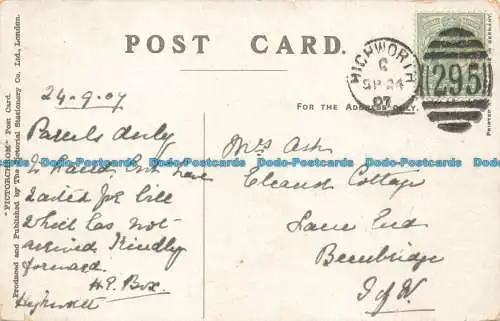 POST CARD.
FOR THE ADDRESS ONLY.
"PICTORCHROM" Post Card.
Produced and Published by The Pictorial Stationery Co. Ltd., London.
HIGHWORTH
SP 24
07
295
24-9-07
Parcels duly
to hand, but have
waited for bill
which has not
arrived. Kindly
forward.
H.P. Box
Highworth
Mrs Ash
Cottage
Lane End
Bembridge
I of W.
Dodo-Postcards Dodo-Postcards Dodo-Postcards Dodo-Postcards